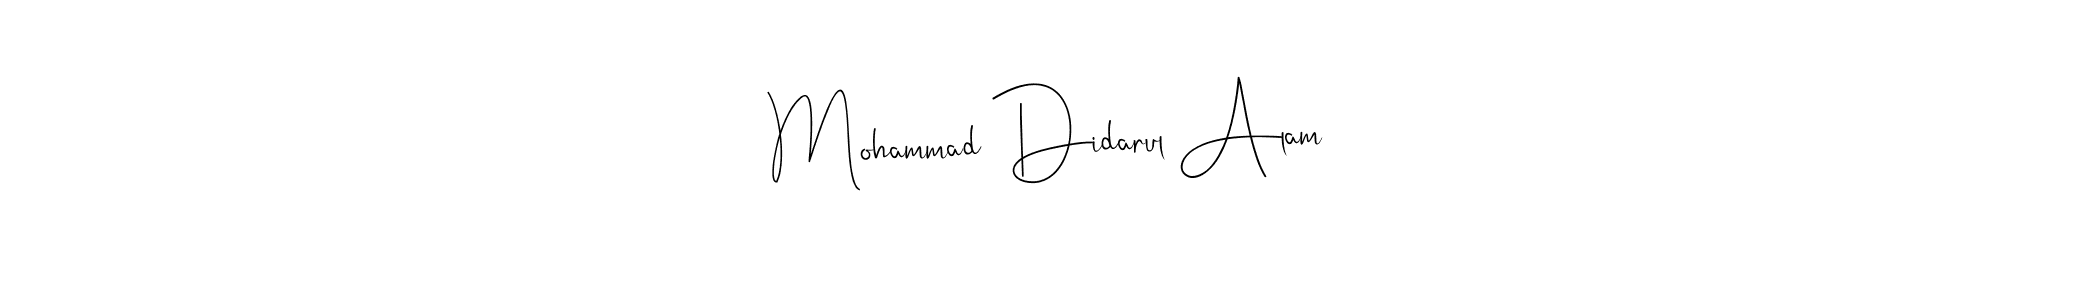 Mohammad Didarul Alam